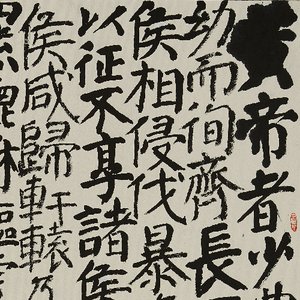 黃帝者少
幼而徇齊長
侯相侵伐暴
以征不享諸侯
侯咸歸軒轅乃